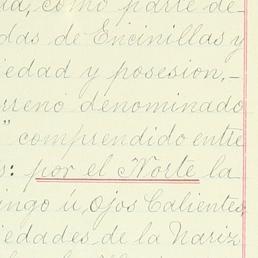 da, como parte de-
das de Encinillas y
iedad y posesion,-
rreno denominado
" comprendido entre
s: por el Norte la
ingo ú, Ojos Calientes,
iedades de la Nariz